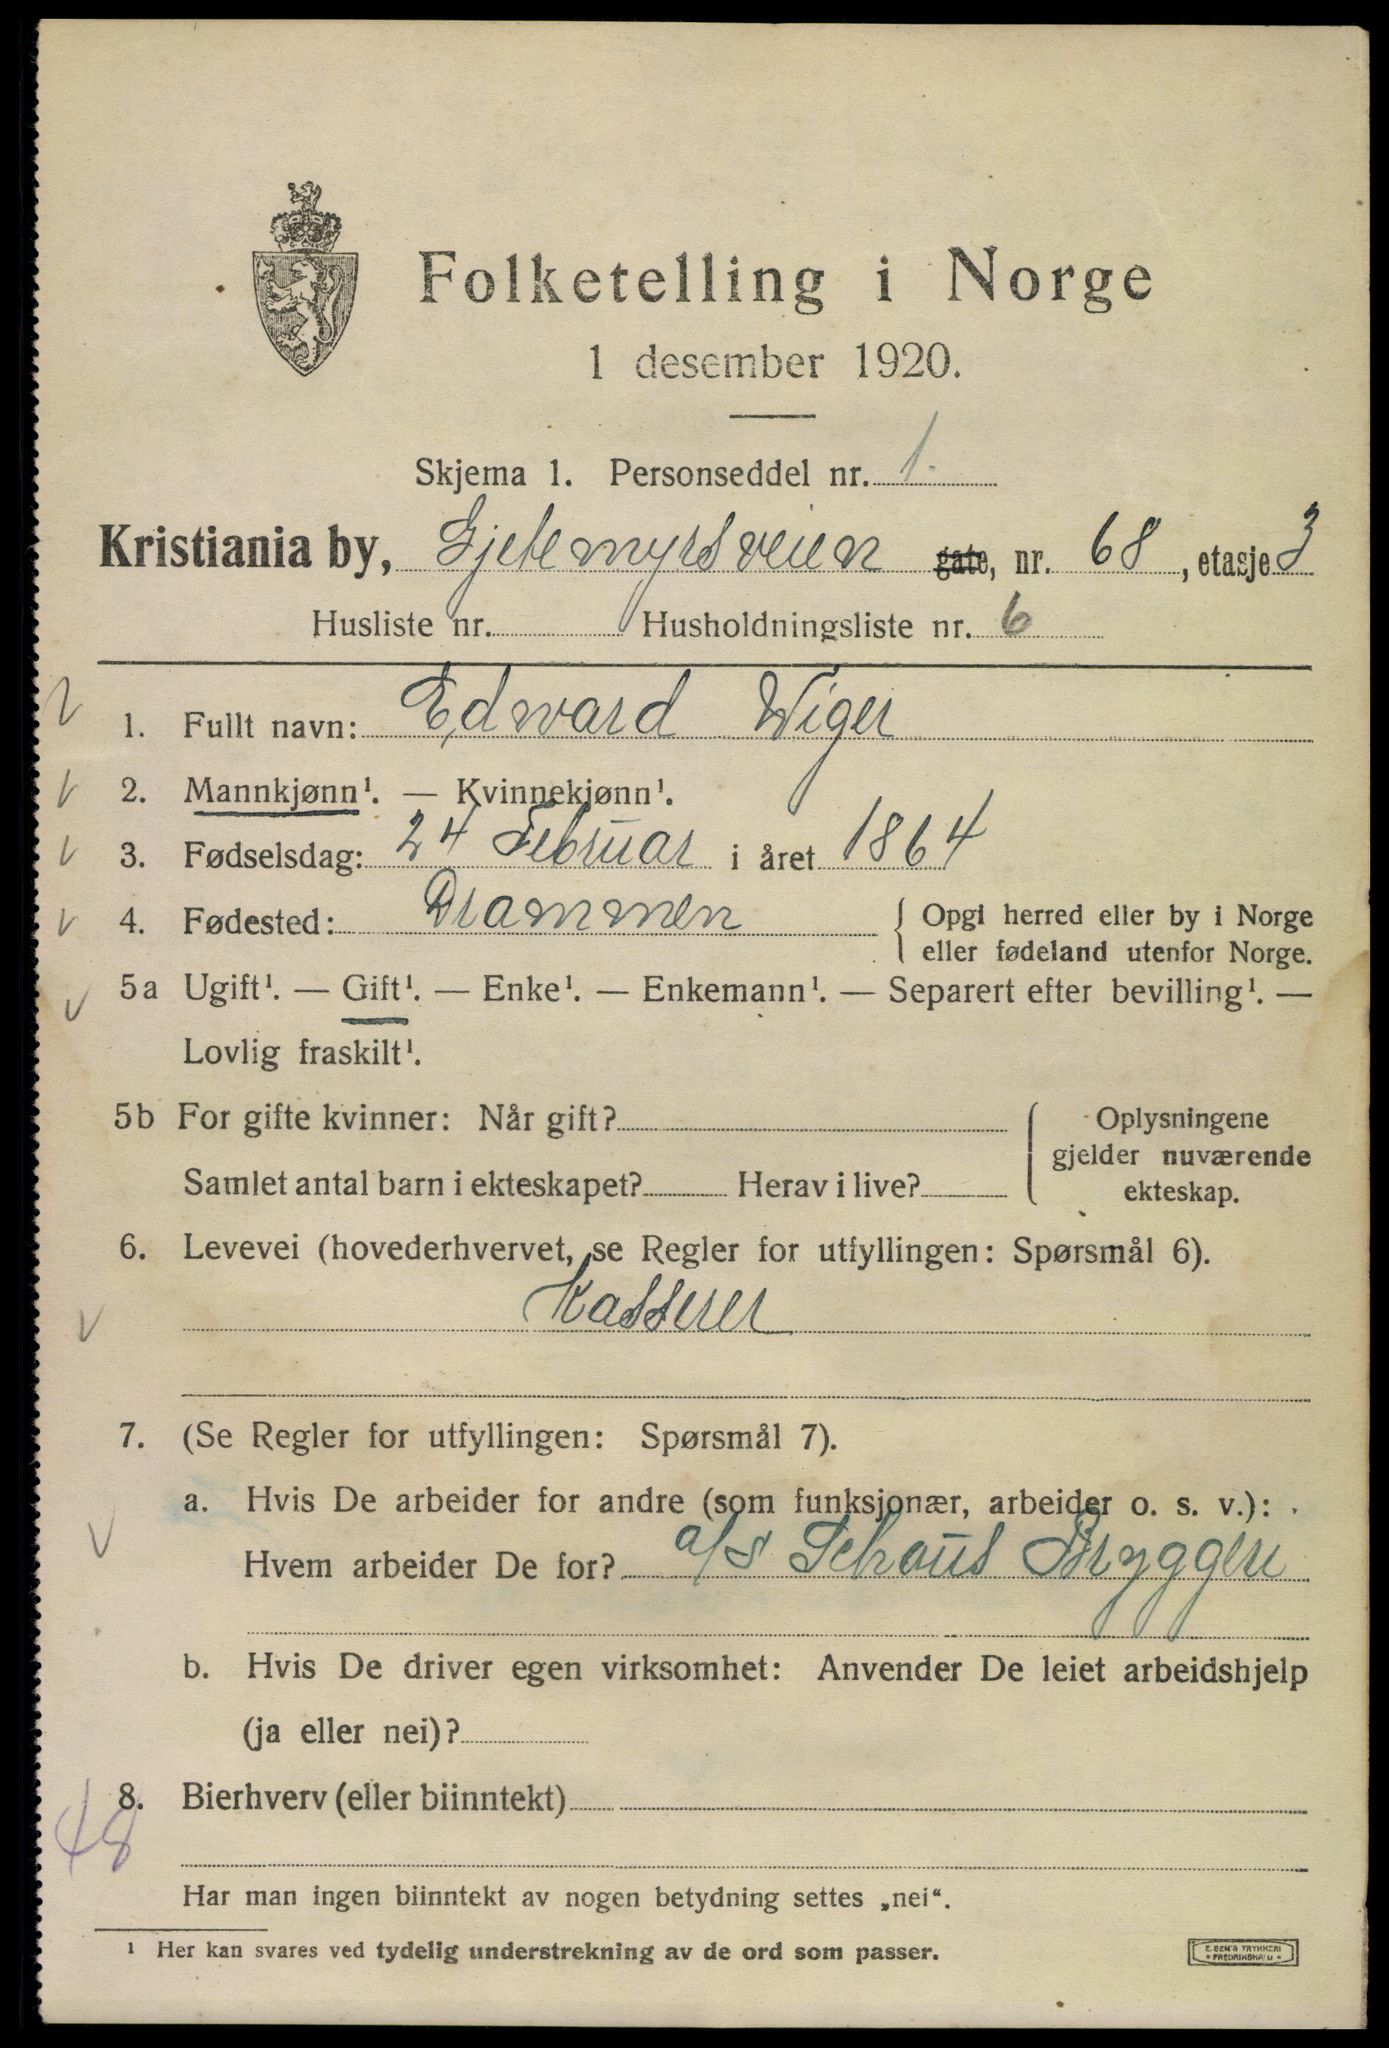 Folketelling i Norge
1 desember 1920.
Skjema 1. Personseddel nr. 1.
Kristiania by, Gjetemyrsveien gate, nr. 68, etasje 3
Husliste nr. Husholdningsliste nr. 6
1. Fullt navn: Edward Wiger
2. Mannkjønn¹. — Kvinnekjønn¹.
3. Fødselsdag: 24 Februar i året 1864
4. Fødested: Drammen { Opgi herred eller by i Norge
eller fødeland utenfor Norge.
5a Ugift¹. — Gift¹. — Enke¹. — Enkemann¹. — Separert efter bevilling¹. —
Lovlig fraskilt¹.
5b For gifte kvinner: Når gift? { Oplysningene
gjelder nuværende
Samlet antal barn i ekteskapet? Herav i live? ekteskap.
6. Levevei (hovederhvervet, se Regler for utfyllingen: Spørsmål 6).
Kasserer
7. (Se Regler for utfyllingen: Spørsmål 7).
a. Hvis De arbeider for andre (som funksjonær, arbeider o. s. v.):
Hvem arbeider De for? a/s Schous Bryggeri
b. Hvis De driver egen virksomhet: Anvender De leiet arbeidshjelp
(ja eller nei)?
8. Bierhverv (eller biinntekt)
48
Har man ingen biinntekt av nogen betydning settes „nei“.
¹ Her kan svares ved tydelig understrekning av de ord som passer.
E. SEM'S TRYKKERI
FREDRIKSHALD